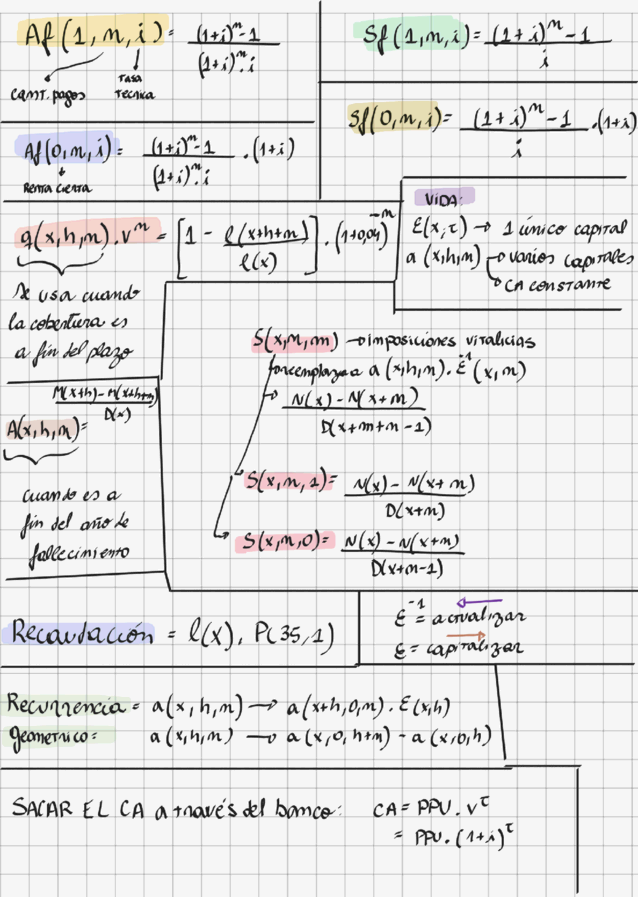 Af(1,n,i) = ((1+i)^n - 1) / ((1+i)^n . i)
cant. pagos
TASA TECNICA
Sf(1,n,i) = ((1+i)^n - 1) / i
Sf(0,n,i) = ((1+i)^n - 1) / i . (1+i)
Af(0,n,i) = ((1+i)^n - 1) / ((1+i)^n . i) . (1+i)
Renta cierta
VIDA:
E(x,τ) → 1 único capital
a (x,h,n) → varios capitales
→ CA constante
q(x,h,n) . v^n = [1 - l(x+h+n) / l(x)] . (1+0,04)^-n
Se usa cuando
la cobertura es
a fin del plazo
S(x,n,m) → imposiciones vitalicias
reemplaza a a (x,h,n) . E^-1 (x,n)
→ (N(x) - N(x+n)) / D(x+m+n-1)
A(x,h,n) = (M(x+h) - M(x+h+n)) / D(x)
cuando es a
fin del año de
fallecimiento
S(x,n,1) = (N(x) - N(x+n)) / D(x+n)
S(x,n,0) = (N(x) - N(x+n)) / D(x+n-1)
Recaudación = l(x) . P(35,1)
E^-1 = actualizar
E = capitalizar
Recurrencia = a(x,h,n) → a(x+h,0,n) . E(x,h)
geometrico = a(x,h,n) → a(x,0,h+n) - a(x,0,h)
SACAR EL CA a través del banco: CA = PPU . v^τ
= PPU . (1+i)^τ